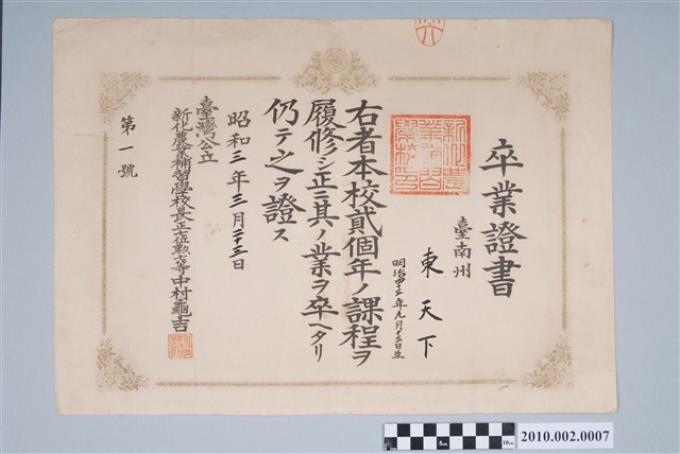 卒業證書
臺南州
東天下
右者本校貳個年ノ課程ヲ
履修シ正ニ其ノ業ヲ卒ヘタリ
仍テ之ヲ證ス
昭和三年三月二十三日
臺灣公立
新化農業補習學校長正七位勲七等中村龜吉
第一號
2010.002.0007